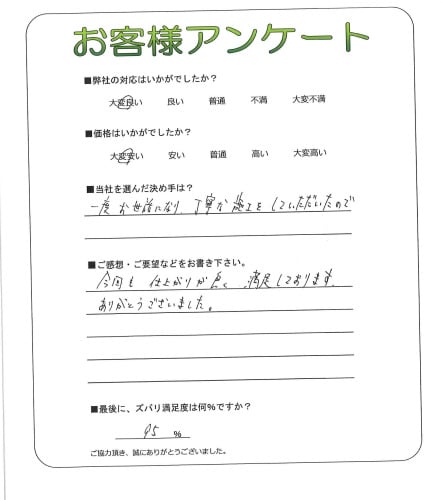 お客様アンケート
■弊社の対応はいかがでしたか?
大変良い 良い 普通 不満 大変不満
■価格はいかがでしたか?
大変安い 安い 普通 高い 大変高い
■当社を選んだ決め手は?
一度お世話になり 丁寧な施工をしていただいたので
■ご感想・ご要望などをお書き下さい。
今回も 仕上がりが良く 満足しております。
ありがとうございました。
■最後に、ズバリ満足度は何%ですか?
95 %
ご協力頂き、誠にありがとうございました。